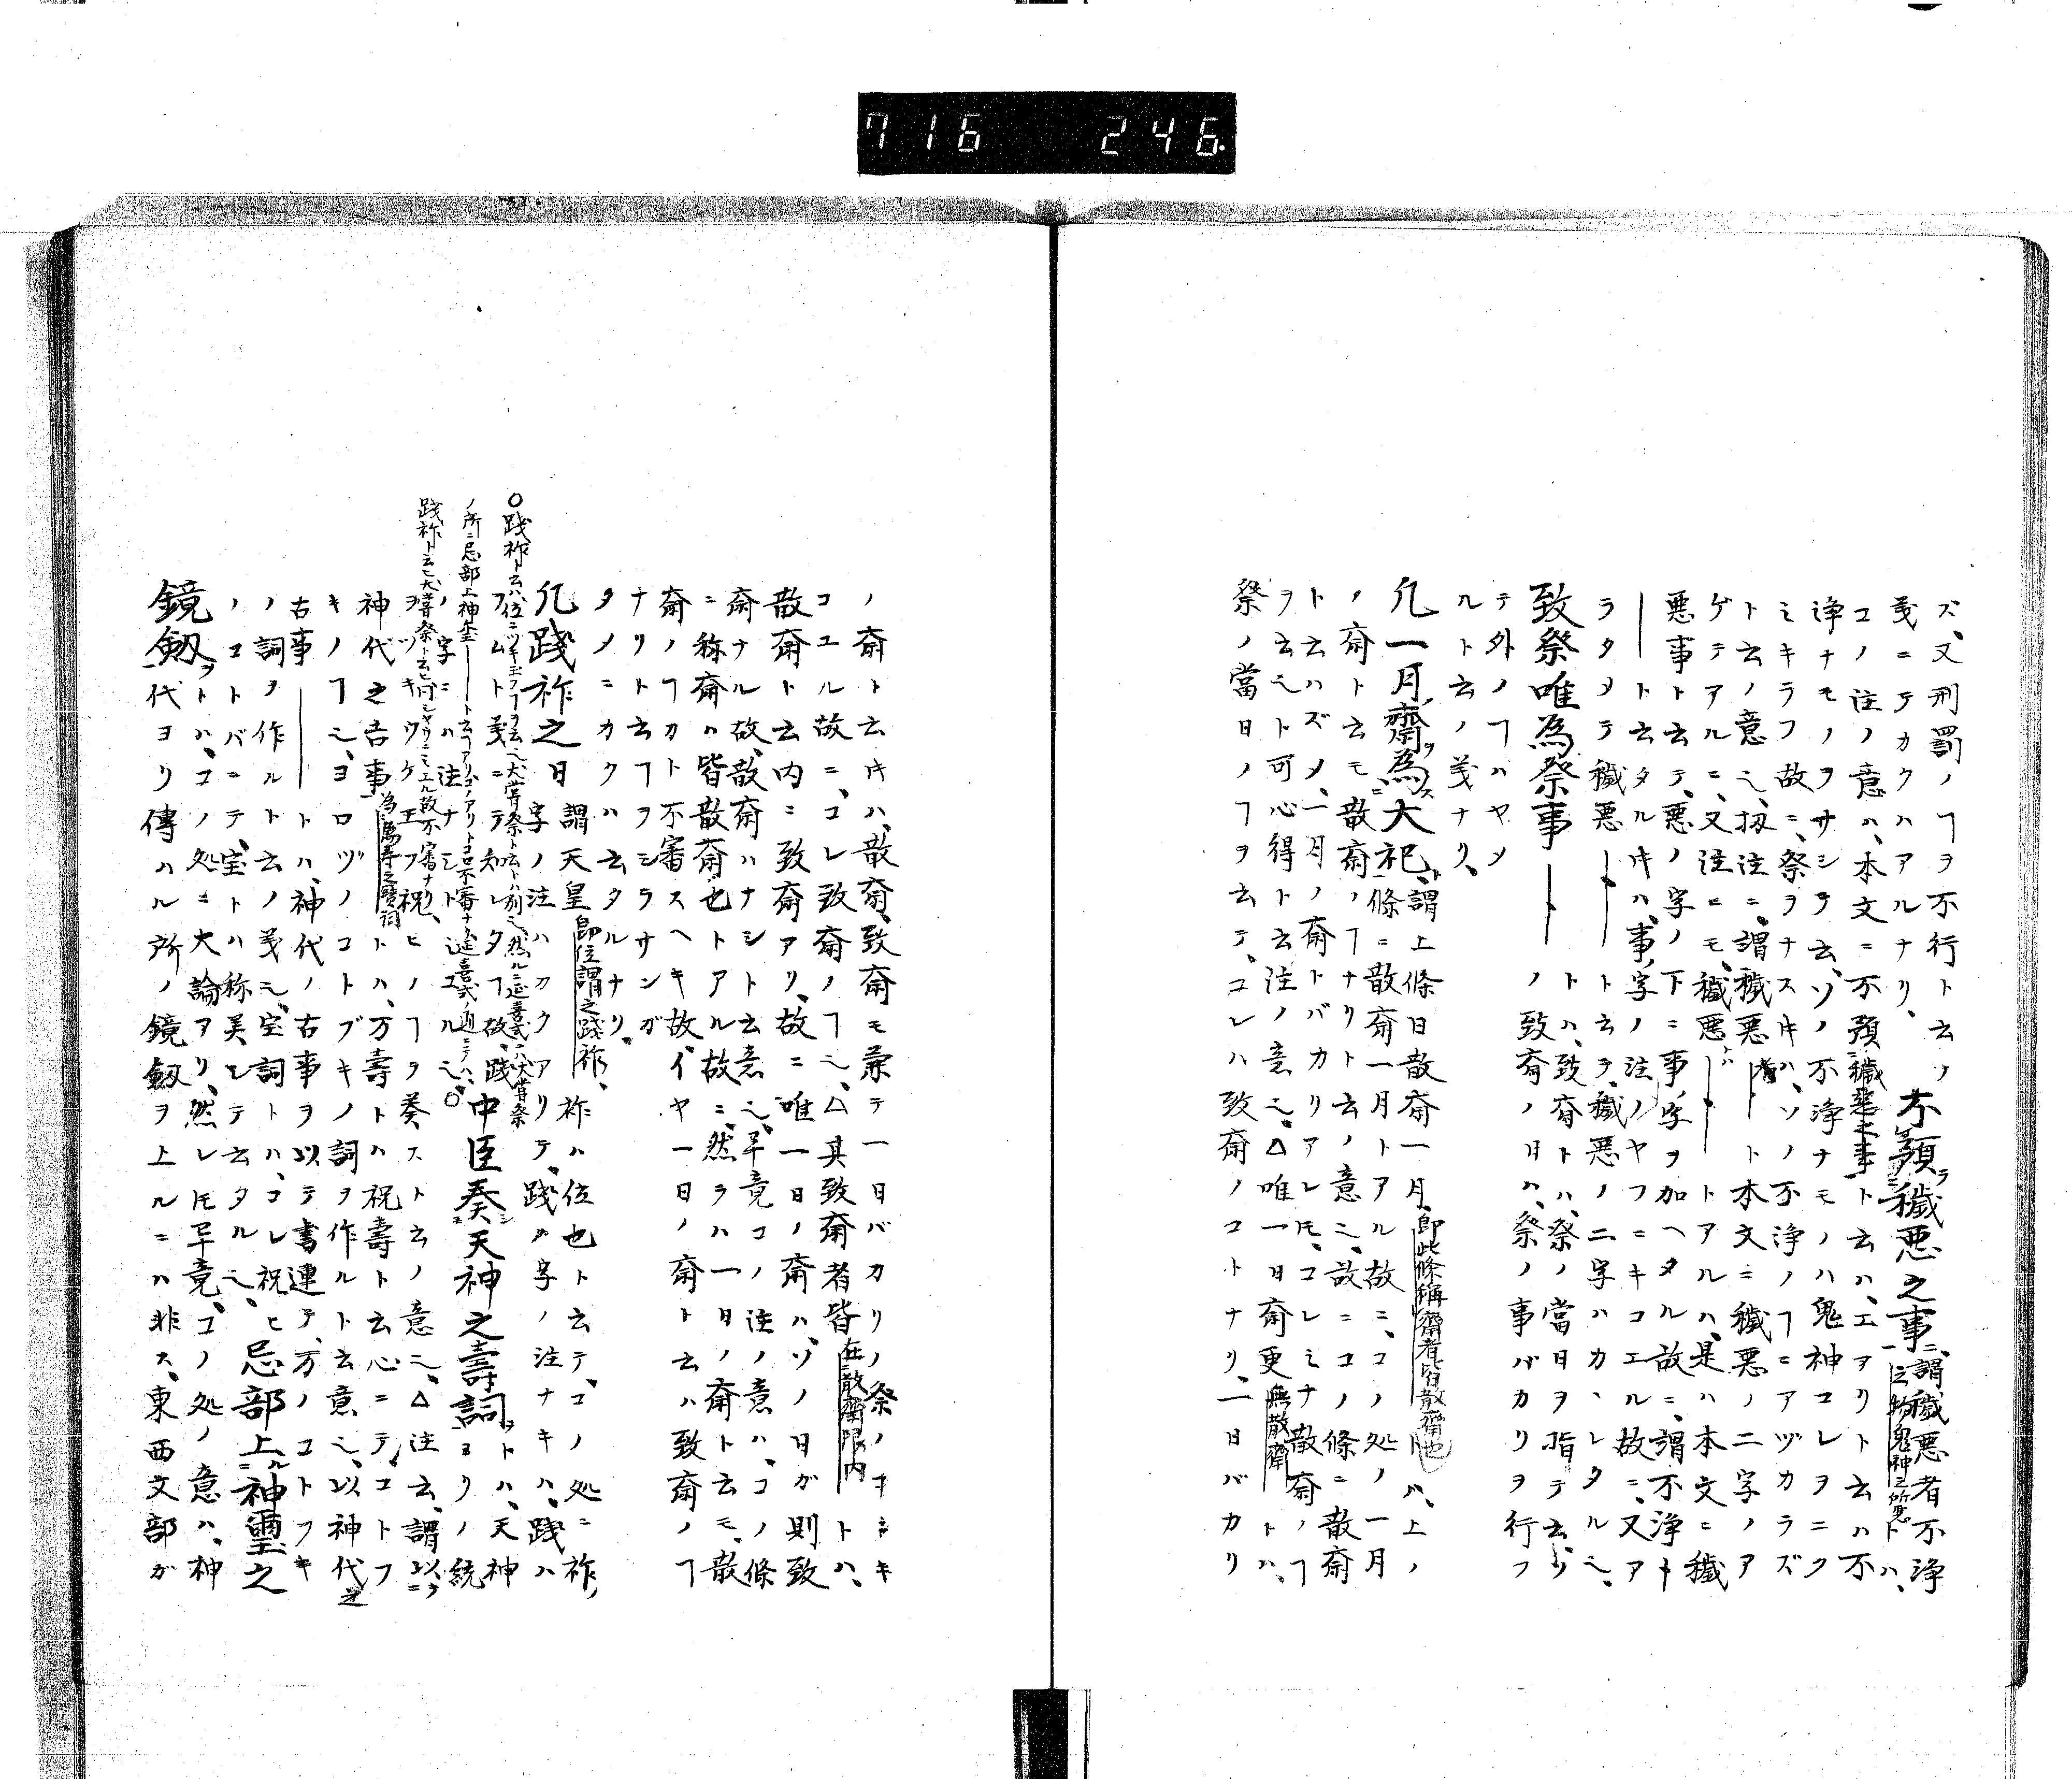 716 246.
ズ、又刑罰ノヿヲ不行ト云ノ
義ニテカクハアルナリ、 不預穢悪之事、謂穢悪者不浄之物鬼神之所悪トハ、
コノ注ノ意ハ、本文ニ不預穢悪之事ト云ハ、エヲリト云ハ不
浄ナモノヲサシテ云、ソノ不浄ナモノハ鬼神コレヲニク
ミキラフ故ニ、祭ヲナスキハ、ソノ不浄ノヿニアヅカラズ
ト云ノ意也、扨注ニ、謂穢悪者──ト本文ニ穢悪ノ二字ノア
ゲテアルニ、又注ニモ、穢悪──トアルハ、是ハ本文ニ穢
悪事ト云テ、悪ノ字ノ下ニ事ノ字ヲ加ヘタル故ニ、謂不浄
──ト云タルキハ、事ノ字ノ注ノヤフニキコエル故ニ、又ア
ラタメテ穢悪──ト云テ、穢悪ノ二字ハカヽレタル也、
致祭唯為祭事──トハ、致斎トハ、祭ノ当日ヲ指テ云、ソ
ノ致斎ノ日ハ、祭ノ事バカリヲ行フ
テ外ノヿハヤメ
ルト云ノ義ナリ、
凡一月齋為大祀、謂上條日散斎一月、即此條稱齋者皆散齋也トハ、上ノ
條ニ散斎一月トアル故ニ、コノ処ノ一月
ノ斎ト云モ散斎ノヿナリト云ノ意也、故ニコノ條ニ散斎
ト云ハズメ、一月ノ斎トバカリアレ𪜈、コレミナ散斎ノヿ
ヲ云也ト可心得ト云注ノ意也、△唯一日斎更無散齋トハ、
祭ノ當日ノヿヲ云テ、コレハ致斎ノコトナリ、一日バカリ
ノ斎ト云キハ、散斎、致斎モ兼テ一日バカリノ祭ノヤフニキ
コエル故ニ、コレ致斎ノヿ也、△其致斎者皆在散齋限内トハ、
散斎ト云内ニ致斎アリ、故ニ唯一日ノ斎ハ、ソノ日ガ則致
斎ナル故、散斎ハナシト云意也、畢竟コノ注ノ意ハ、コノ條
ニ称斎ハ皆散斎也トアル故ニ、然ラハ一日ノ斎ト云モ、散
斎ノヿカト不審スヘキ故、イヤ一日ノ斎ト云ハ致斎ノヿ
ナリト云フヿヲシラサンガ
タメニカクハ云タルナリ、
凡踐祚之日 謂天皇即位謂之踐祚、祚ハ位也ト云テ、コノ処ニ祚ノ
字ノ注ハカクアリテ、踐ノ字ノ注ナキハ、踐ハ
フムト義ニテ知レタヿ故、踐
ノ字ニハ注ナシト迎エル也、○中臣奏天神之壽詞ヲトハ、天神ヨリノ統
ヲツギウケ玉フ祝ヒノヿヲ奏スト云ノ意也、△注云、謂以
神代之古事為萬壽之寶詞トハ、万壽トハ祝壽ト云心ニテ、コトフ
キノヿ也、ヨロヅノコトブキノ詞ヲ作ルト云意也、以神代之
古事──トハ、神代ノ古事ヲ以テ書連テ、万ノコトフキ
ノ詞ヲ作ルト云ノ義也、宝詞トハ、コレ祝ヒ
ノコトバニテ、宝トハ称美シテ云タル也、忌部上神璽之
鏡劔ヲトハ、コノ処ニ大論アリ、然レ𪜈畢竟、コノ処ノ意ハ、神
代ヨリ傳ハル所ノ鏡劔ヲ上ルニハ非ス、東西文部ガ